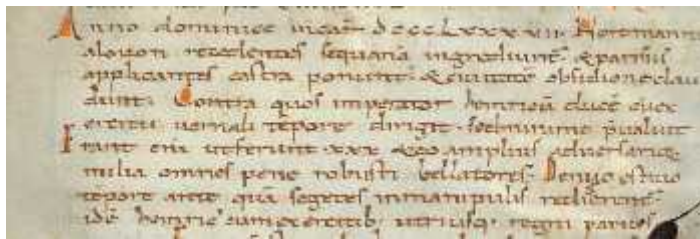 Anno dominice incarñ DCCCLXXXVII Nortmanni
alouon recedentes sequana ingrediunt̄ & parisius
applicantes castra ponunt & ciuitatē obsidione clau
dunt. Contra quos imperator heinricū ducē cū ex
ercitu uernali tēpore dirigit. sed minime p̄ualuit
Erant eni utferunt XXX & eo amplius aduersariorū
milia omnes pene robusti bellatores. Denuo estiuo
tēpore ante quā segetes inmanipulis redierent
idē heinric cum exercitib; utriusq; regni parisius